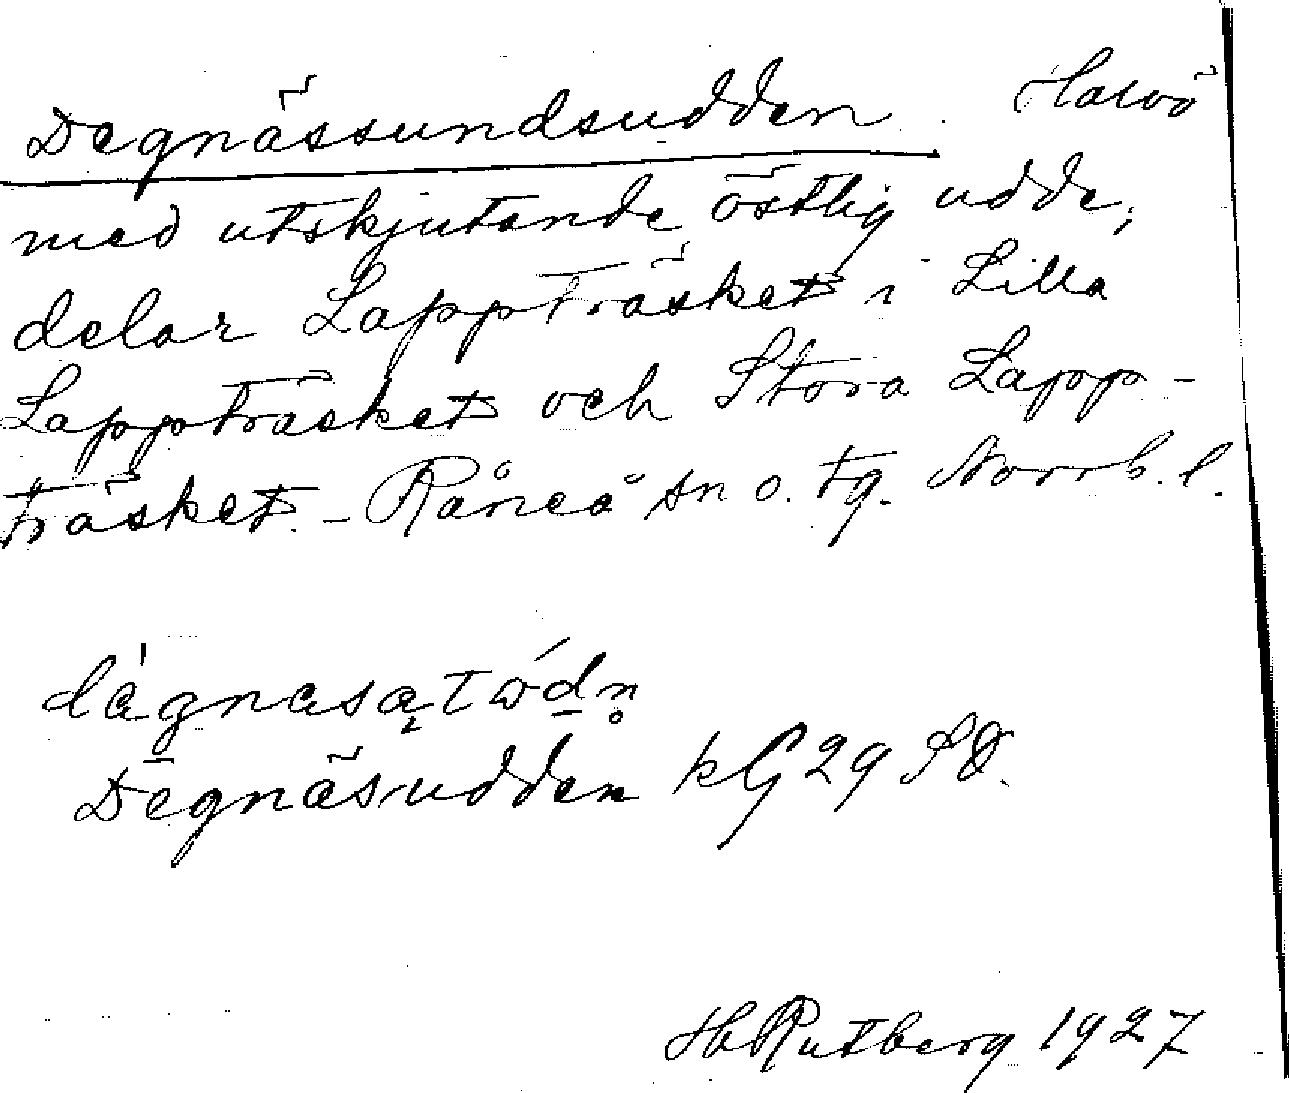 Degnässundsudden. Halvö
med utskjutande östlig udde,
delar Lappträsket i Lilla
Lappträsket och Stora Lapp-
träsket. - Råneå sn o. tg. Norrb. l.
Degnäsudden kG 29 SO.
H Rutberg 1927